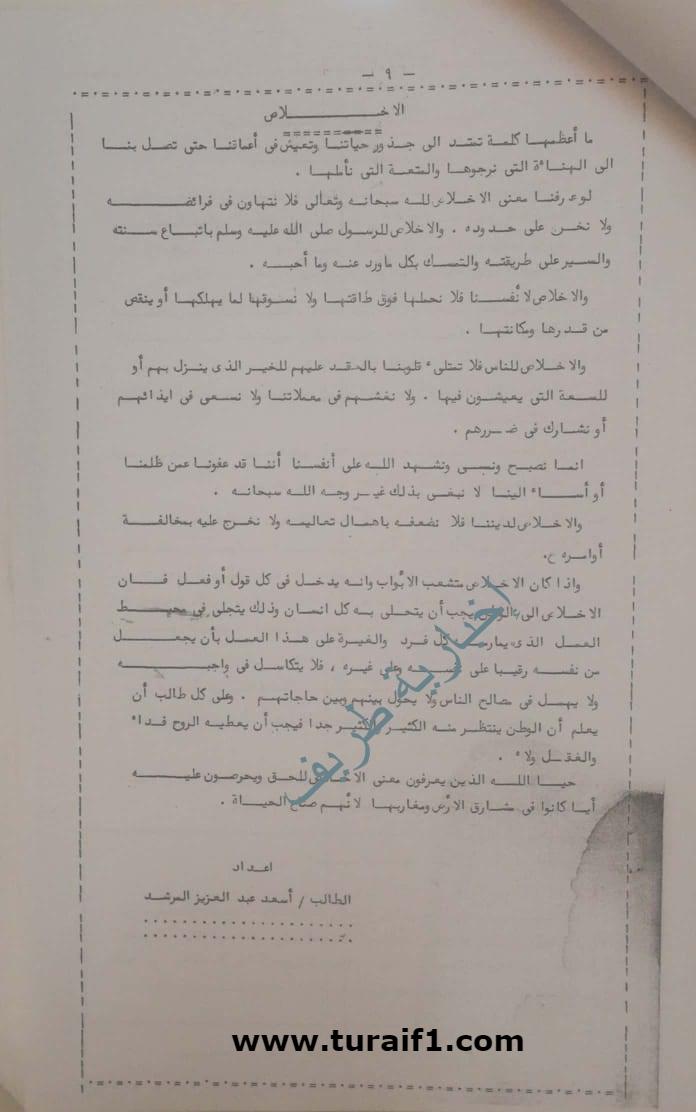 - ٩ -
الاخلاص
ما أعظمها كلمة تمتد الى جذور حياتنا وتعيش فى أعماقنا حتى تصل بنا
الى الهناءة التى نرجوها والمتعة التى نأملها .
لوعرفنا معنى الاخلاص لله سبحانه وتعالى فلا نتهاون فى فرائضه
ولا نخرج على حدوده . والاخلاص للرسول صلى الله عليه وسلم باتباع سنته
والسير على طريقته والتمسك بكل ماورد عنه وما أحبه .
والاخلاص لأنفسنا فلا نحملها فوق طاقتها ولا نسوقها لما يهلكها أو ينقص
من قدرها ومكانتها .
والاخلاص للناس فلا تمتلىء قلوبنا بالحقد عليهم للخير الذى ينزل بهم أو
للسعة التى يعيشون فيها . ولا نغشهم فى معملاتنا ولا نسعى فى ايذائهم
أو نشارك فى ضررهم .
انما نصبح ونمسى ونشهد الله على أنفسنا أننا قد عفونا عمن ظلمنا
أو أساء الينا لا نبغى بذلك غير وجه الله سبحانه .
والاخلاص لديننا فلا نضعفه باهمال تعاليمه ولا نخرج عليه بمخالفة
أوامره .
واذا كان الاخلاص متشعب الأبواب وانه يدخل فى كل قول أو فعل فان
الاخلاص الى الوطن يجب أن يتحلى به كل انسان وذلك يتجلى فى محيط
العمل الذى يمارسه كل فرد والغيرة على هذا العمل بأن يجعل
من نفسه رقيبا على نفسه وعلى غيره ، فلا يتكاسل فى واجبه
ولا يهمل فى مصالح الناس ولا يحول بينهم وبين حاجاتهم . وعلى كل طالب أن
يعلم أن الوطن ينتظر منه الكثير الكثير جدا فيجب أن يعطيه الروح فداء
والعقل ولاء .
حيا الله الذين يعرفون معنى الاخلاص للحق ويحرصون عليه
أيا كانوا فى مشارق الأرض ومغاربها لأنهم صناع الحياة .
اعداد
الطالب / أسعد عبد العزيز المرشد
اخبارية طريف
www.turaif1.com